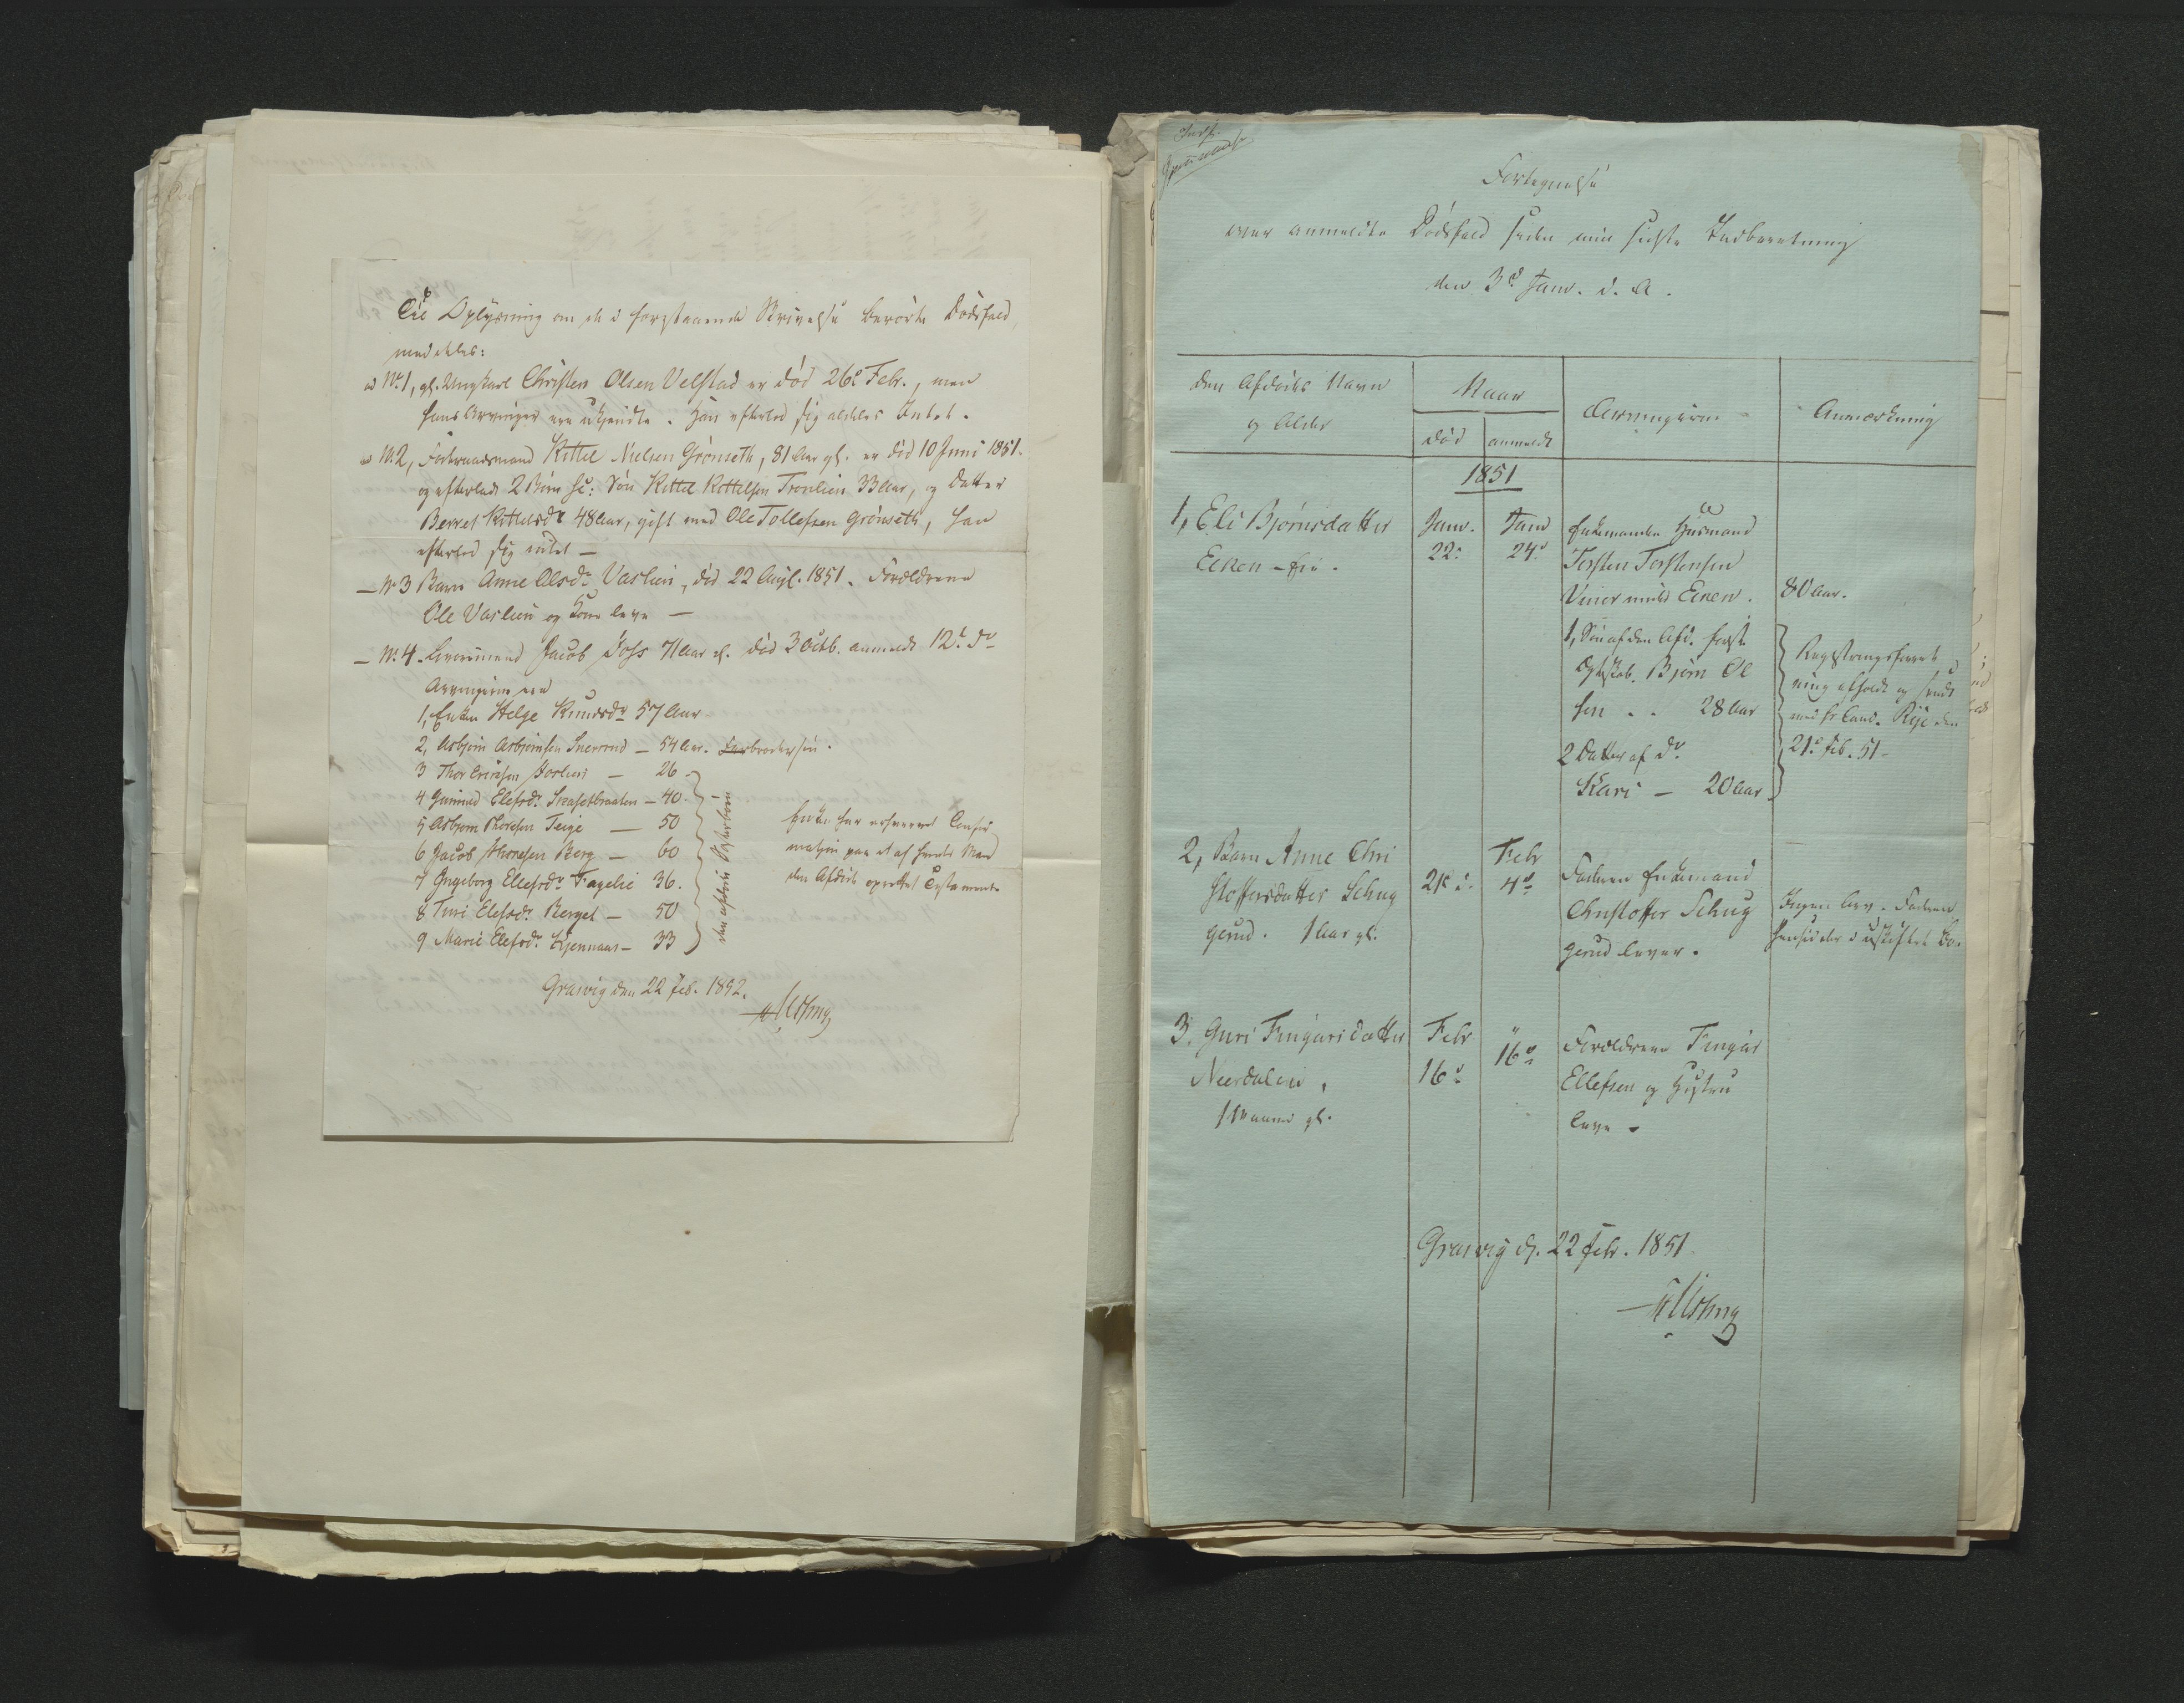 Til Oplysning om de i foranstaaende Skrivelse berørte Dødsfald,
meddeles:
ad No 1, gl. Ungkarl Christen Olsen Velstad er død 26d Febr., men
hans Arvinger ere ukjendte. Han efterlod sig aldeles Intet.
ad No 2, Føderaadsmand Kittil Nielsen Grønseth, 81 Aar gl. er død 10 Juni 1851.
og efterlod 2 Børn sc: Søn Kittil Kittelsen Tronlien 33 Aar, og Datter
Berret Kittelsdr 48 Aar, gift med Ole Tollefsen Grønseth, han
efterlod sig intet —
— No 3 Barn Anne Olsdr Vaslien, død 22 Augt. 1851. Forældrene
Ole Vaslien og Kone leve —
— No 4. Jacob 71 Aar gl. død 3 Octb. anmeldt 12d do
Arvingerne ere
1, Enken Helge Knudsdr 57 Aar
2, Asbjørn Asbjørnsen Snerrud — 54 Aar. Farbrodersøn.
3 Thor Ericksen — 26
4 Gunild Elefsdr — 40.
5 Asbjørn Thoresen Teige — 50
6 Jacob Thoresen Berg — 60
7 Ingeborg Ellefsdr Fagelie 36.
8 Turi Elefsdr Berget — 50
9 Marie Elefsdr Kjennaas — 33
den afdøde Søsterbørn
Enken har erhvervet Confir
mation paa et af hende Med
den Afdøde oprettet Testamente
Grasvig den 22 Feb. 1852.
Fortegnelse
over anmeldte Dødsfald siden min sidste Indberetning
den 3d Janv. d. A.
Den Afdødes Navn
og Alder
Naar
død
anmeldt
Arvingerne
Anmærkning
1851
1, Eli Bjørnsdatter
Eeken - eie.
Janv.
22d
Janv
24d
Enkemanden Husmand
Torsten Torstensen
Eeken.
80 Aar.
1, Søn af den Afd. første
Ægteskab. Bjørn Ol
sen . . 28 Aar
2 Datter af do
Kari — 20 Aar
Registreringsforret
ning afholdt og sendt
med Hr Cand. Rye den
21d Feb. 51 -
2, Barn Anne Chri
stoffersdatter Schug
gerud. 1 Aar gl.
Febr
4d
Faderen Enkemand
Christoffer Schug
gerud lever.
Ingen Arv. Faderen
hensidder i uskiftet Bo.
3. Guri Fingarsdatter
Neerdalen,
gl.
Febr
16d
"
16d
Forældrene Fingar
Ellefsen og Hustru
leve -
Grasvig d. 22 Febr. 1851